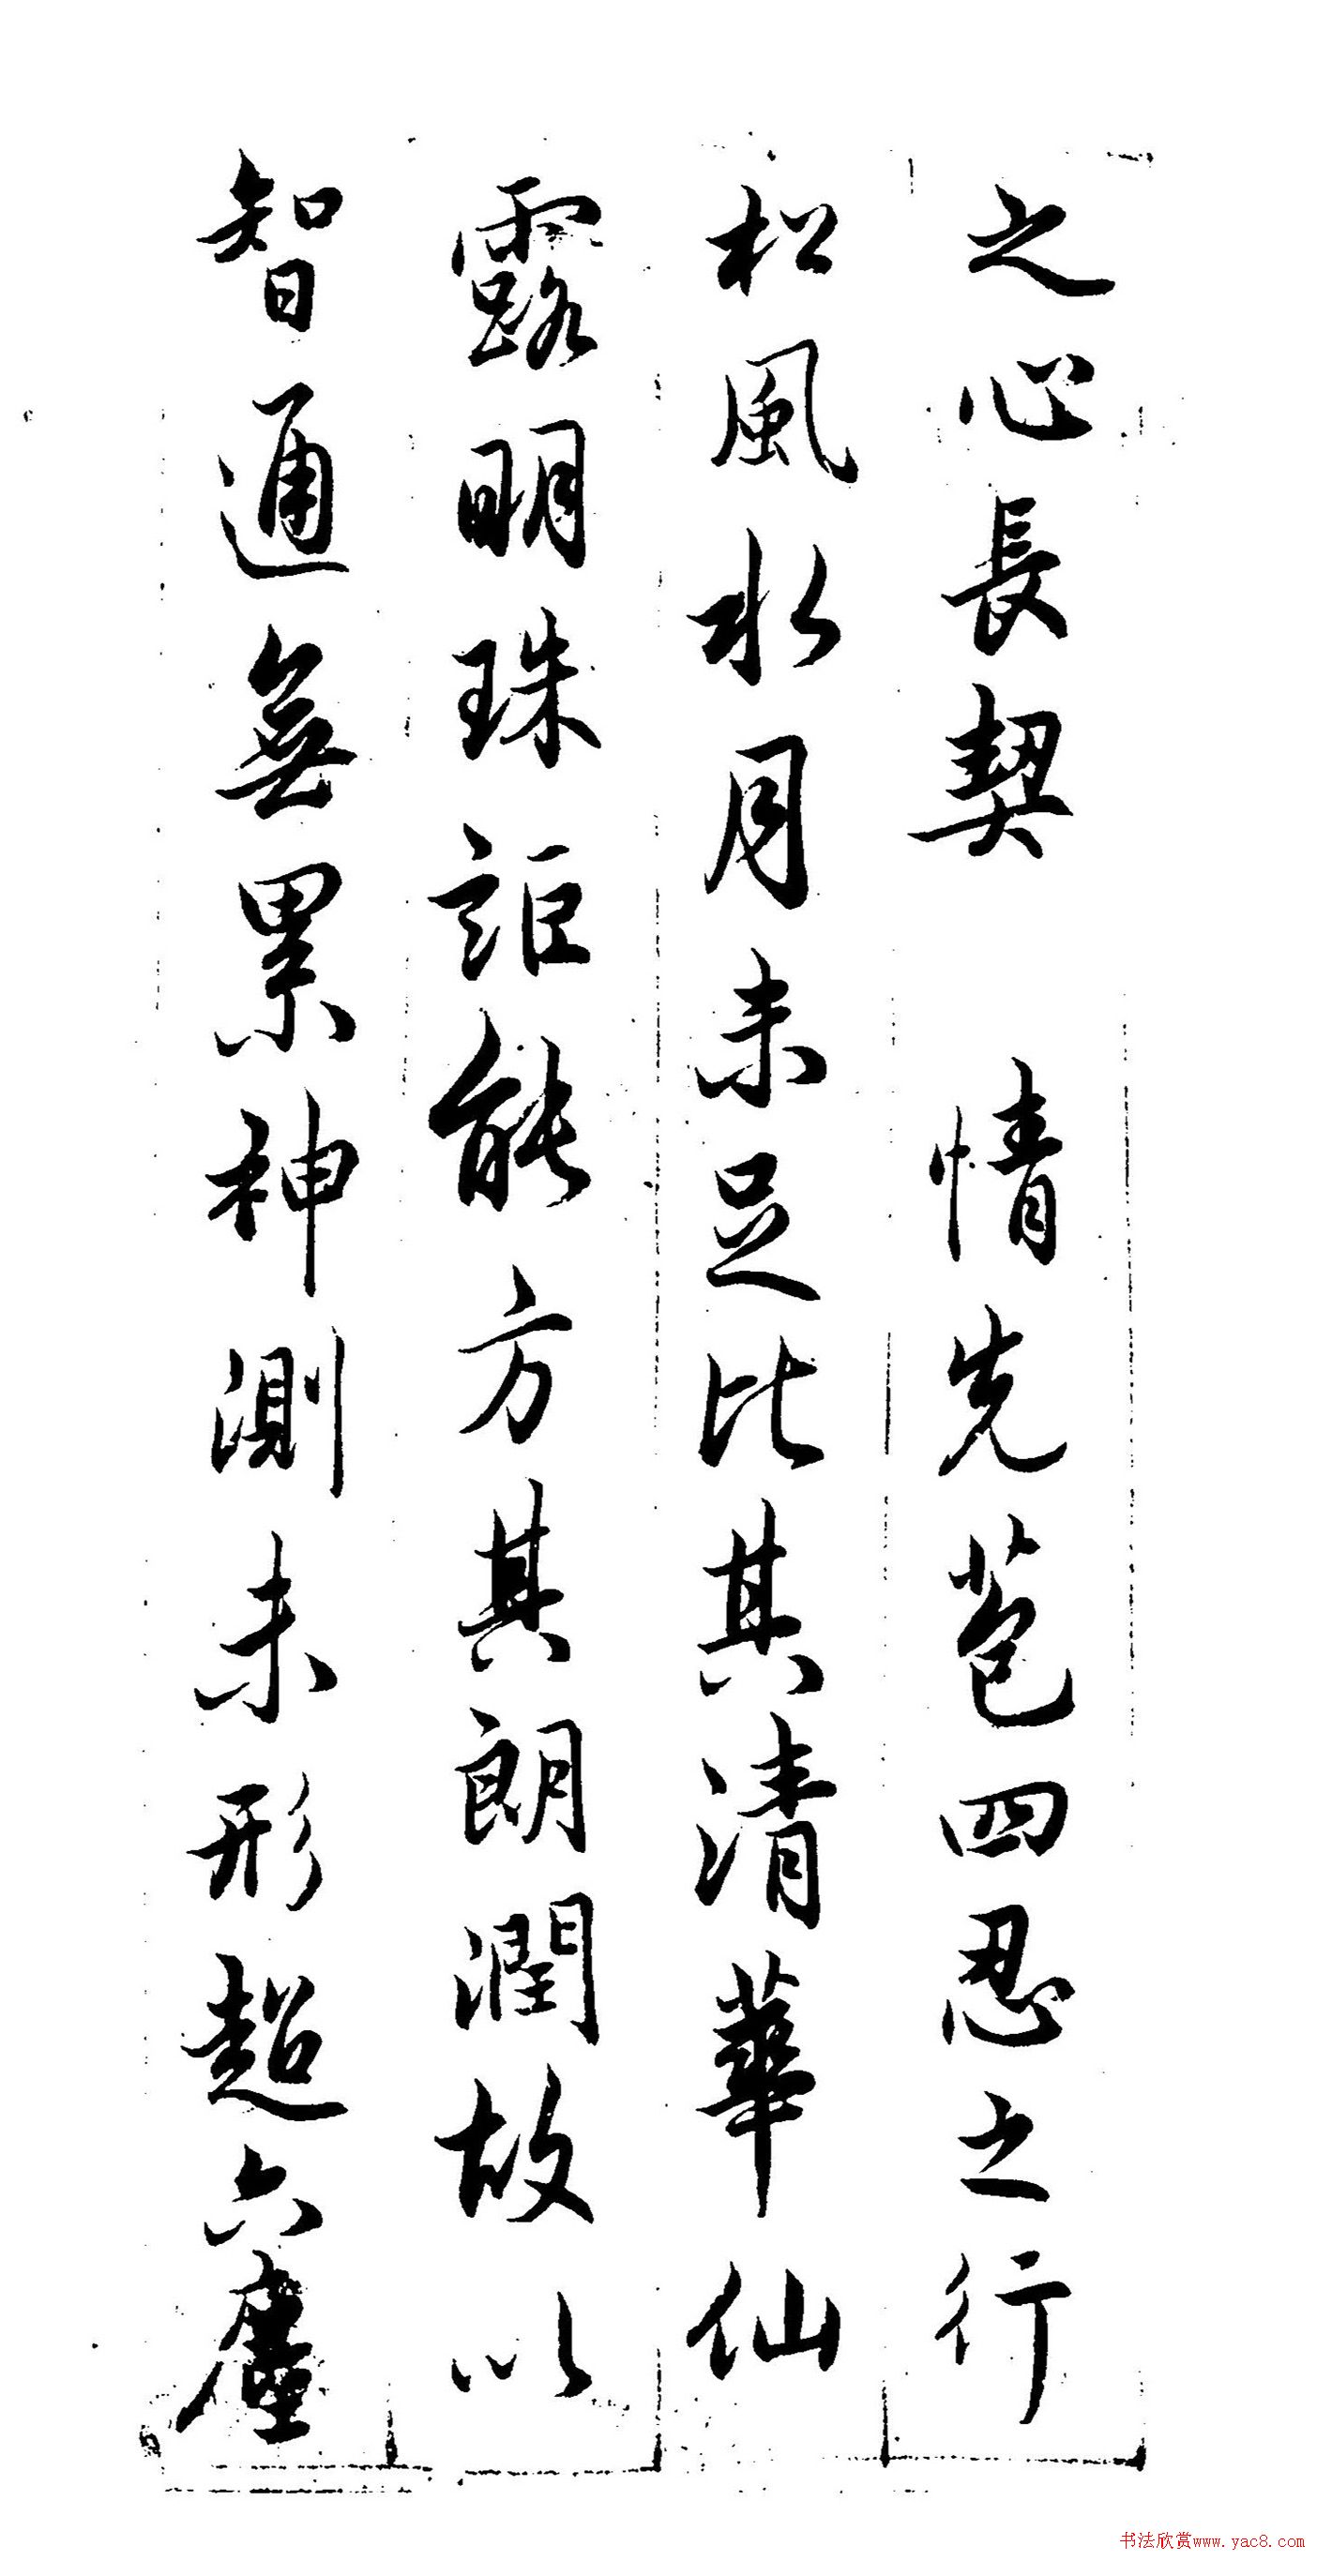 之心長契 情先苞四忍之行
松風水月未足比其清華仙
露明珠詎能方其朗潤故以
智通無累神測未形超六塵
书法欣赏www.yac8.com